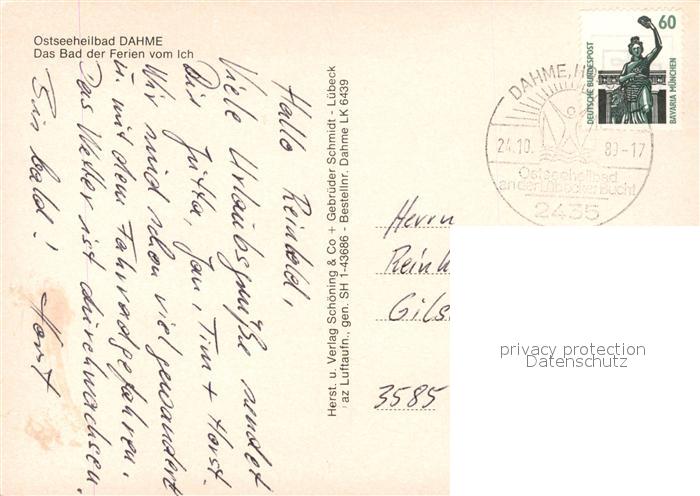 Ostseeheilbad DAHME
Das Bad der Ferien vom Ich
Hallo Reinhold,
Viele Urlaubsgrüße sendet
Dir Jutta, Jan, Tim + Horst.
Wir sind schon viel gewandert
u. mit dem Fahrrad gefahren.
Das Wetter ist durchwachsen.
Bis bald! Horst
Herst. u. Verlag Schöning & Co + Gebrüder Schmidt - Lübeck
az Luftaufn., gen. SH 1-43686 - Bestellnr. Dahme LK 6439
60
DEUTSCHE BUNDESPOST
BAVARIA MÜNCHEN
DAHME, H
24.10. 89-17
Ostseeheilbad
an der Lübecker Bucht
2435
Herrn
Reinh
Gils
3585
privacy protection
Datenschutz